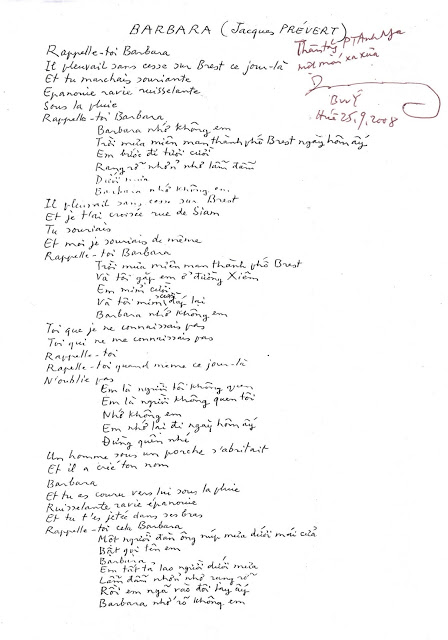 BARBARA (Jacques PRÉVERT)
Thân tg PTAnh Nga
một mái xa xưa
Bửu Ý
Huế 25.9.2008
Rappelle-toi Barbara
Il pleuvait sans cesse sur Brest ce jour-là
Et tu marchais souriante
Epanouie ravie ruisselante
Sous la pluie
Rappelle-toi Barbara
Barbara nhớ không em
Trời mưa miên man thành phố Brest ngày hôm ấy
Em bước đi tươi cười
Rạng rỡ nhởn nhơ lấm đẫm
Dưới mưa
Barbara nhớ không em
Il pleuvait sans cesse sur Brest
Et je t'ai croisée rue de Siam
Tu souriais
Et moi je souriais de même
Rappelle-toi Barbara
Trời mưa miên man thành phố Brest
Và tôi gặp em ở đường Xiêm
Em mỉm cười
Và tôi mỉm cười đáp lại
Barbara nhớ không em
Toi que je ne connaissais pas
Toi qui ne me connaissais pas
Rappelle-toi
Rapelle-toi quand meme ce jour-là
N'oublie pas
Em là người tôi không quen
Em là người không quen tôi
Nhớ không em
Em nhớ lại đi ngày hôm ấy
Đừng quên nhé
Un homme sous un porche s'abritait
Et il a crié ton nom
Barbara
Et tu as couru vers lui sous la pluie
Ruisselante ravie épanouie
Et tu t'es jetée dans ses bras
Rappelle-toi cela Barbara
Một người đàn ông núp mưa dưới mái cửa
Bật gọi tên em
Barbara
Em tất tả lao người dưới mưa
Lấm đẫm nhởn nhơ rạng rỡ
Rồi em ngã vào đôi tay ấy
Barbara nhớ rõ không em